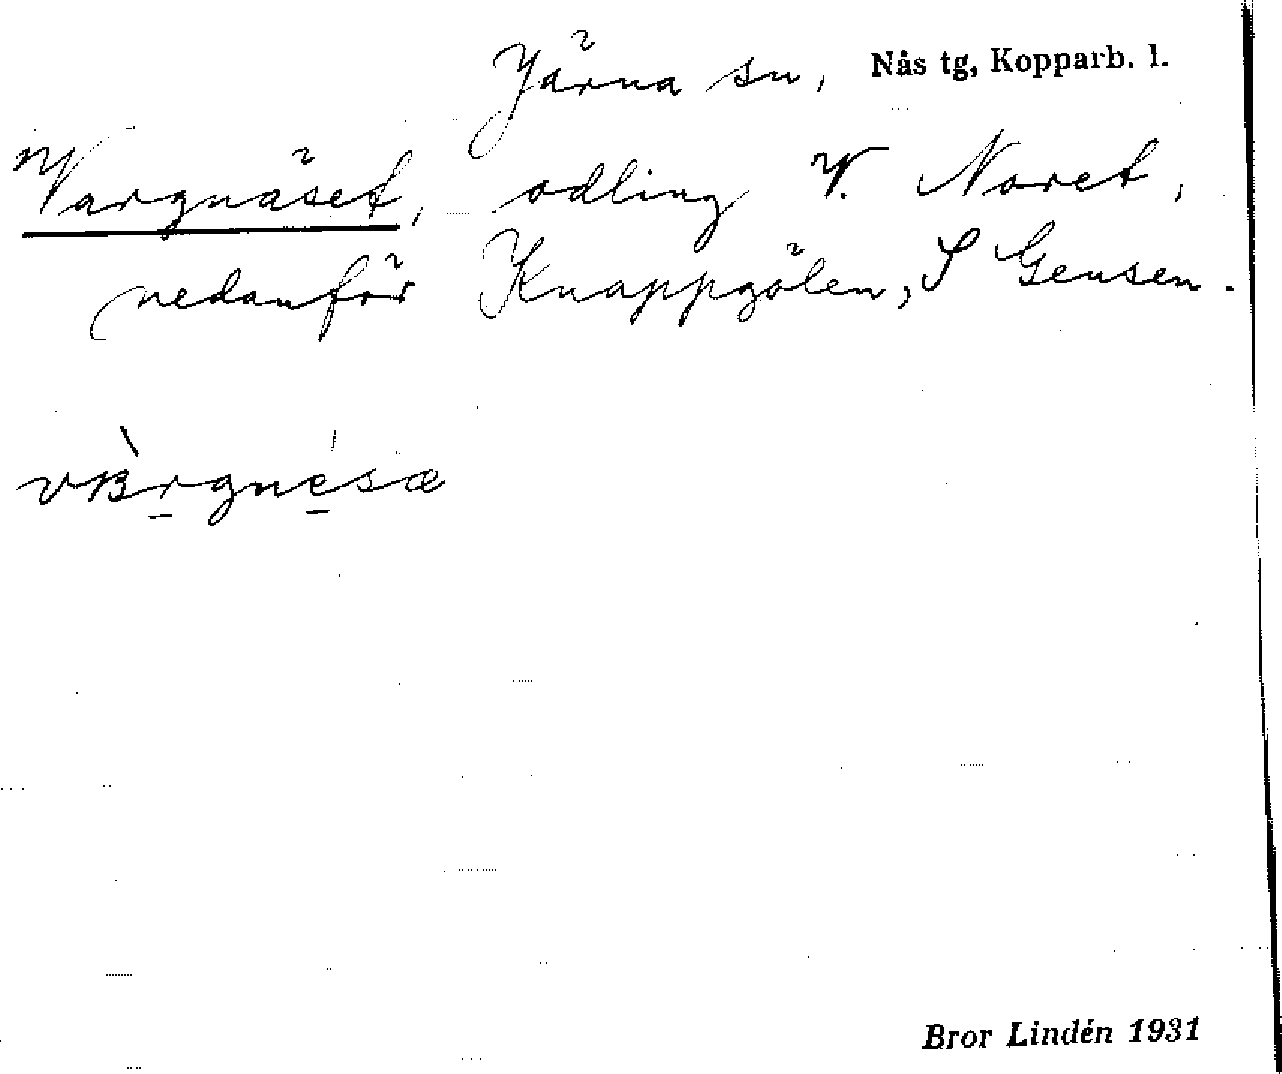 Järna sn, Nås tg, Kopparb. l.
Vargnäset, odling V. Noret,
nedanför Knappgölen, S Gensen.
vʙ̀rgnésæ
Bror Lindén 1931